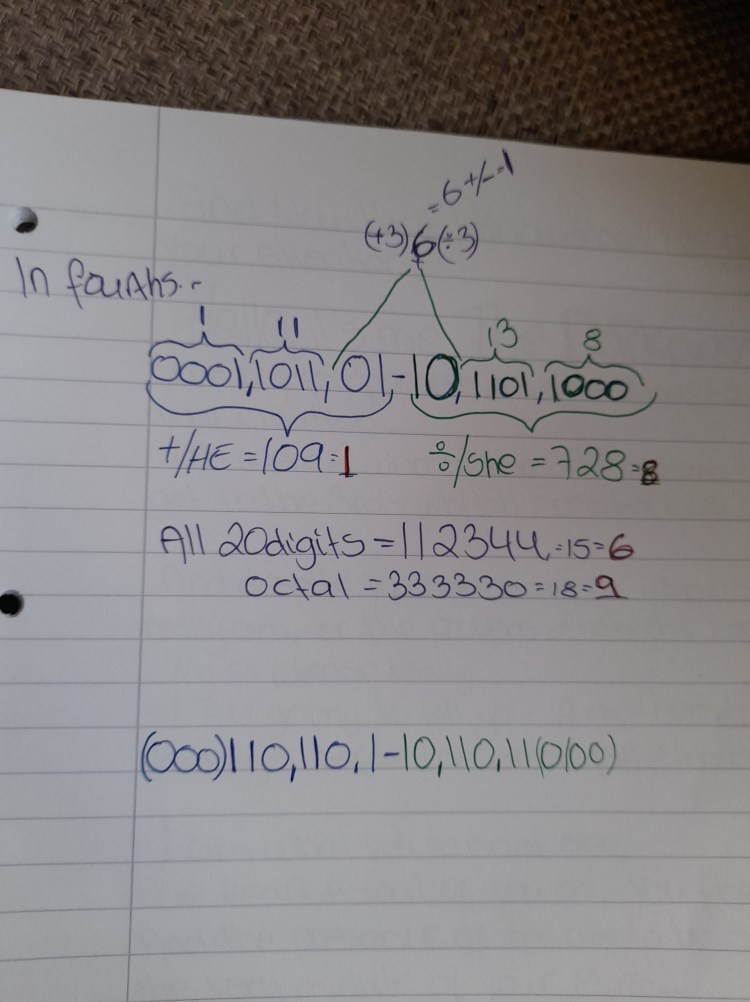 = 6 +/- 1
(+3) 6 (÷3)
In fourths.-
1 11 13 8
0001,1011,01-10,1101,1000
+/HE = 109 = 1 ÷/She = 728 = 8
All 20digits = 112344 = 15 = 6
octal = 333330 = 18 = 9
(000)110,110,1-10,110,11(0100)